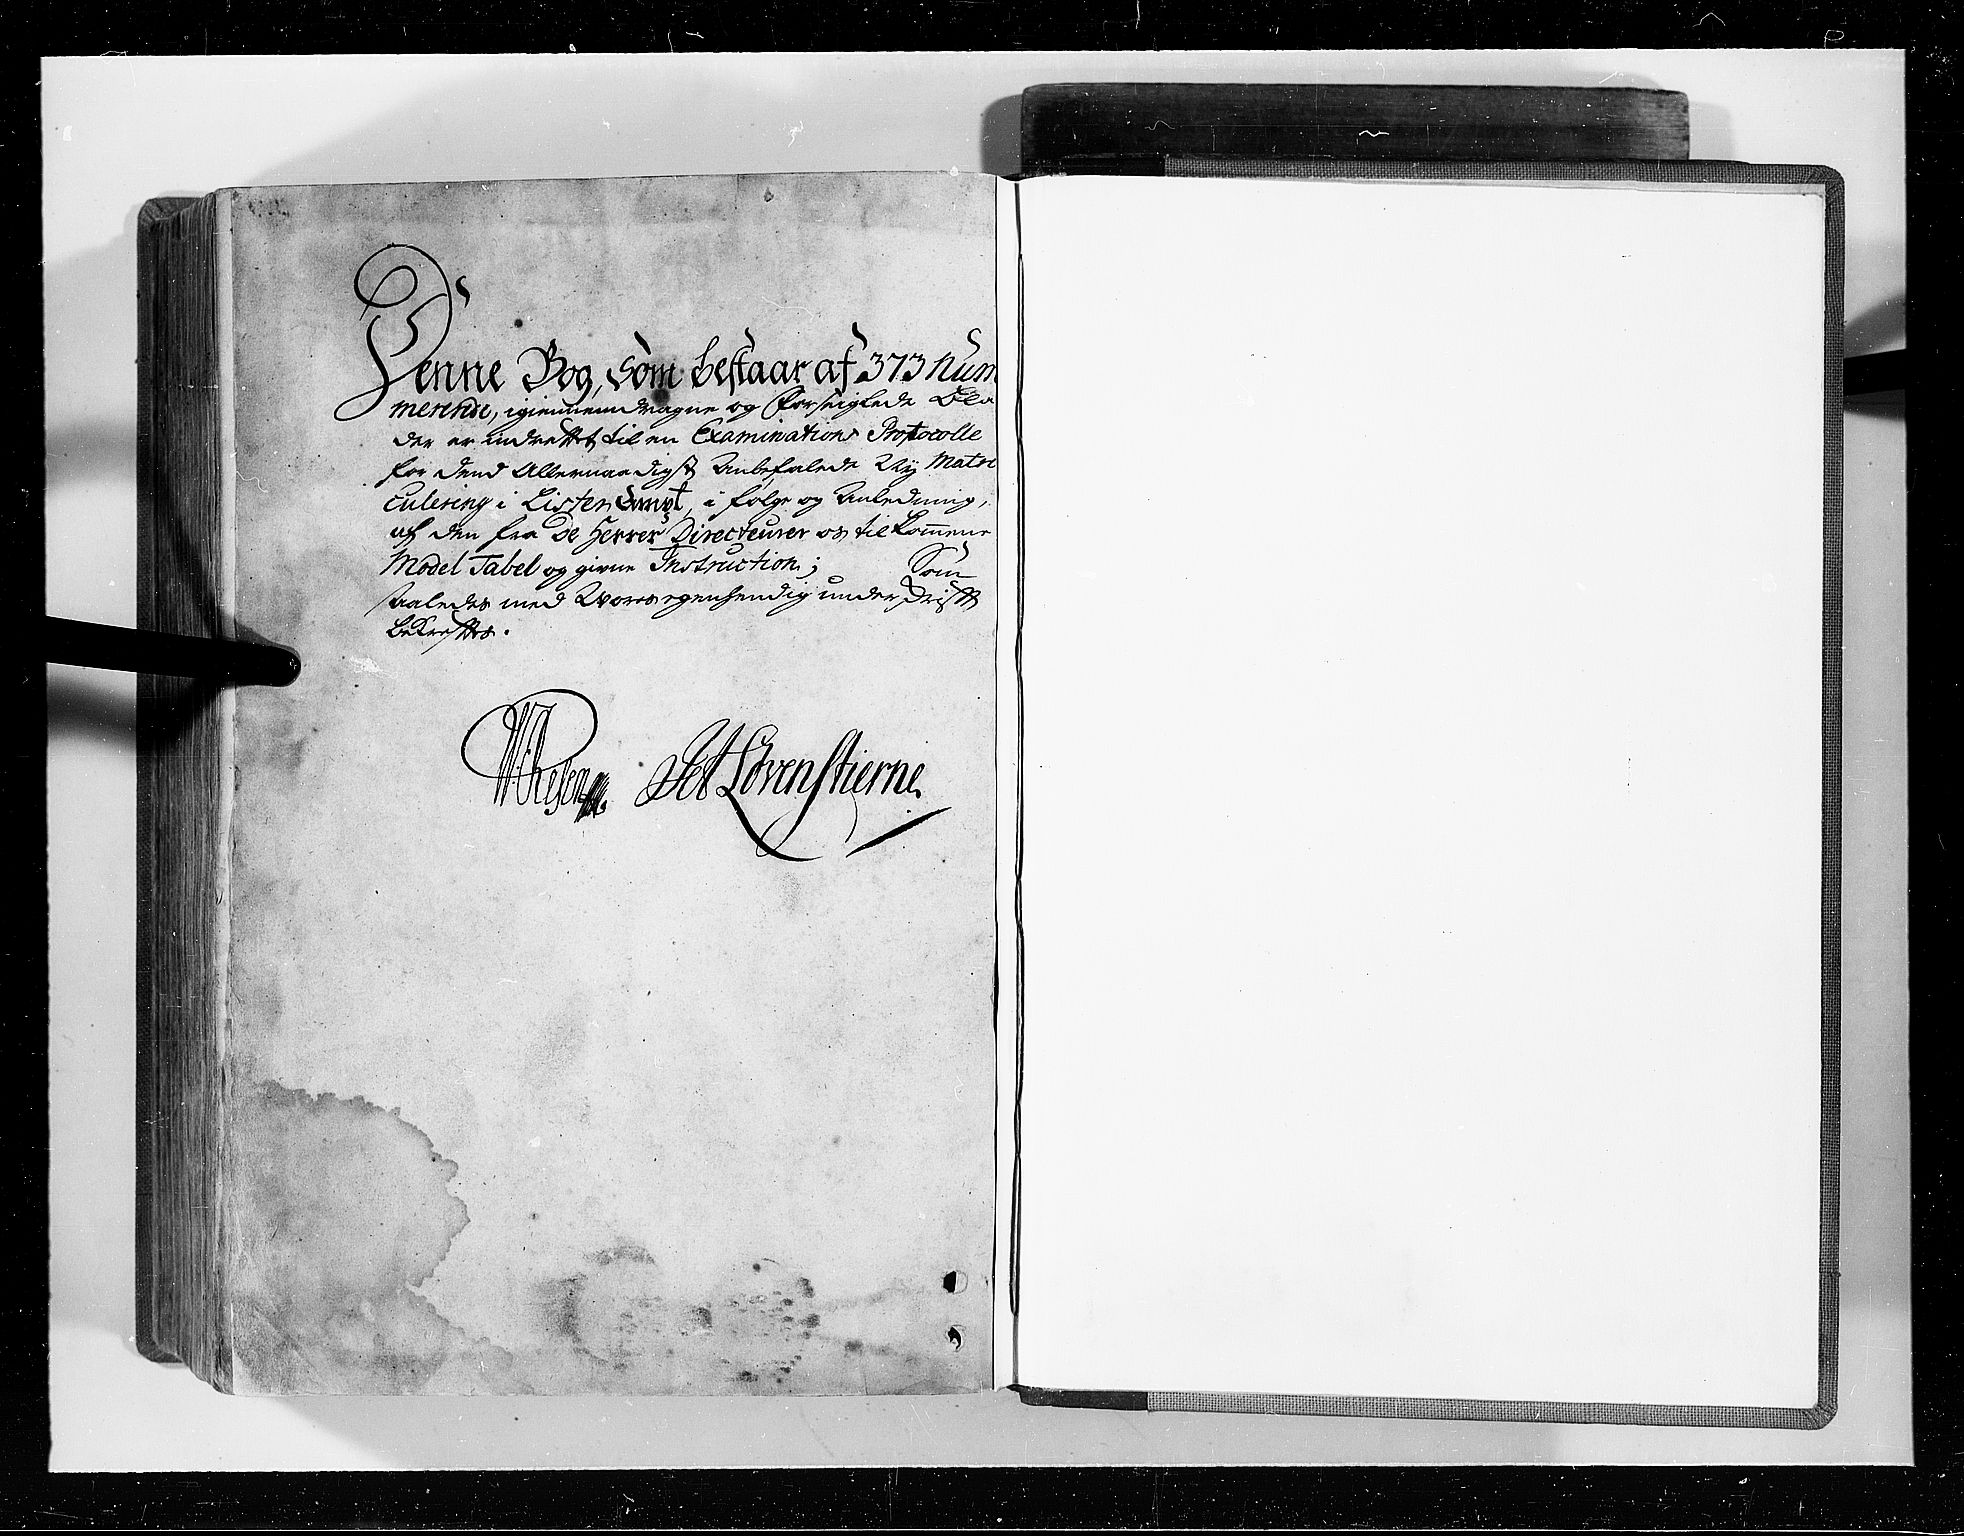 Denne Bog, som bestaar af 373 Num
merende, igiennemdragne og Forseiglede Bla
der er indrettet til en Examinations Protocolle
for dend Allernaadigst Anbefalede Ny Matri
culering i Lister Ampt, i følge og Anledning,
af den fra De Herrer Directeurer os tilkomne
Model Tabel og givne Instruction; Som
saaledes med Vores egenhendig underskrifft
bekrefftes.
Løvenstierne.